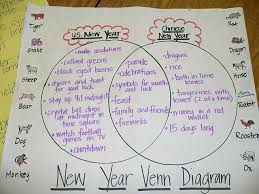 U.S. New Year
Chinese
New Year
Tiger
Snake
Sheep
Bear
Dog
Monkey
• make resolutions
• collard greens
• black eyed peas
• cheers and toast
for good luck
• stay up 'til midnight
• crystal ball drops
at midnight in
time square
• watch football
games on TV
• countdown
• parade
• celebrations
• symbols
• feast
• family and friends
• fireworks
• dragons
• rice
• bath in lime
leaves
• tangerines with
leaves (2 at a time)
• money in a red
wallet
• 15 days long
Rat
Dragon
Horse
Rabbit
Rooster
Ox
New Year Venn Diagram